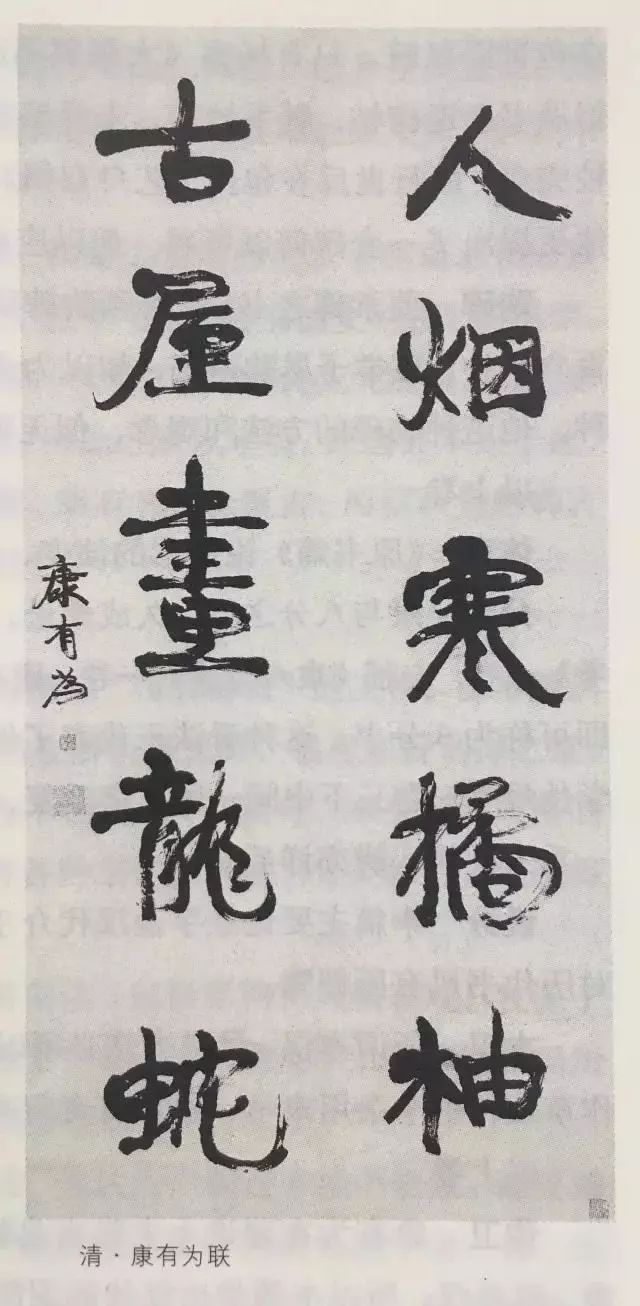 人烟寒橘柚
古屋画龍蛇
康有為
清·康有为联